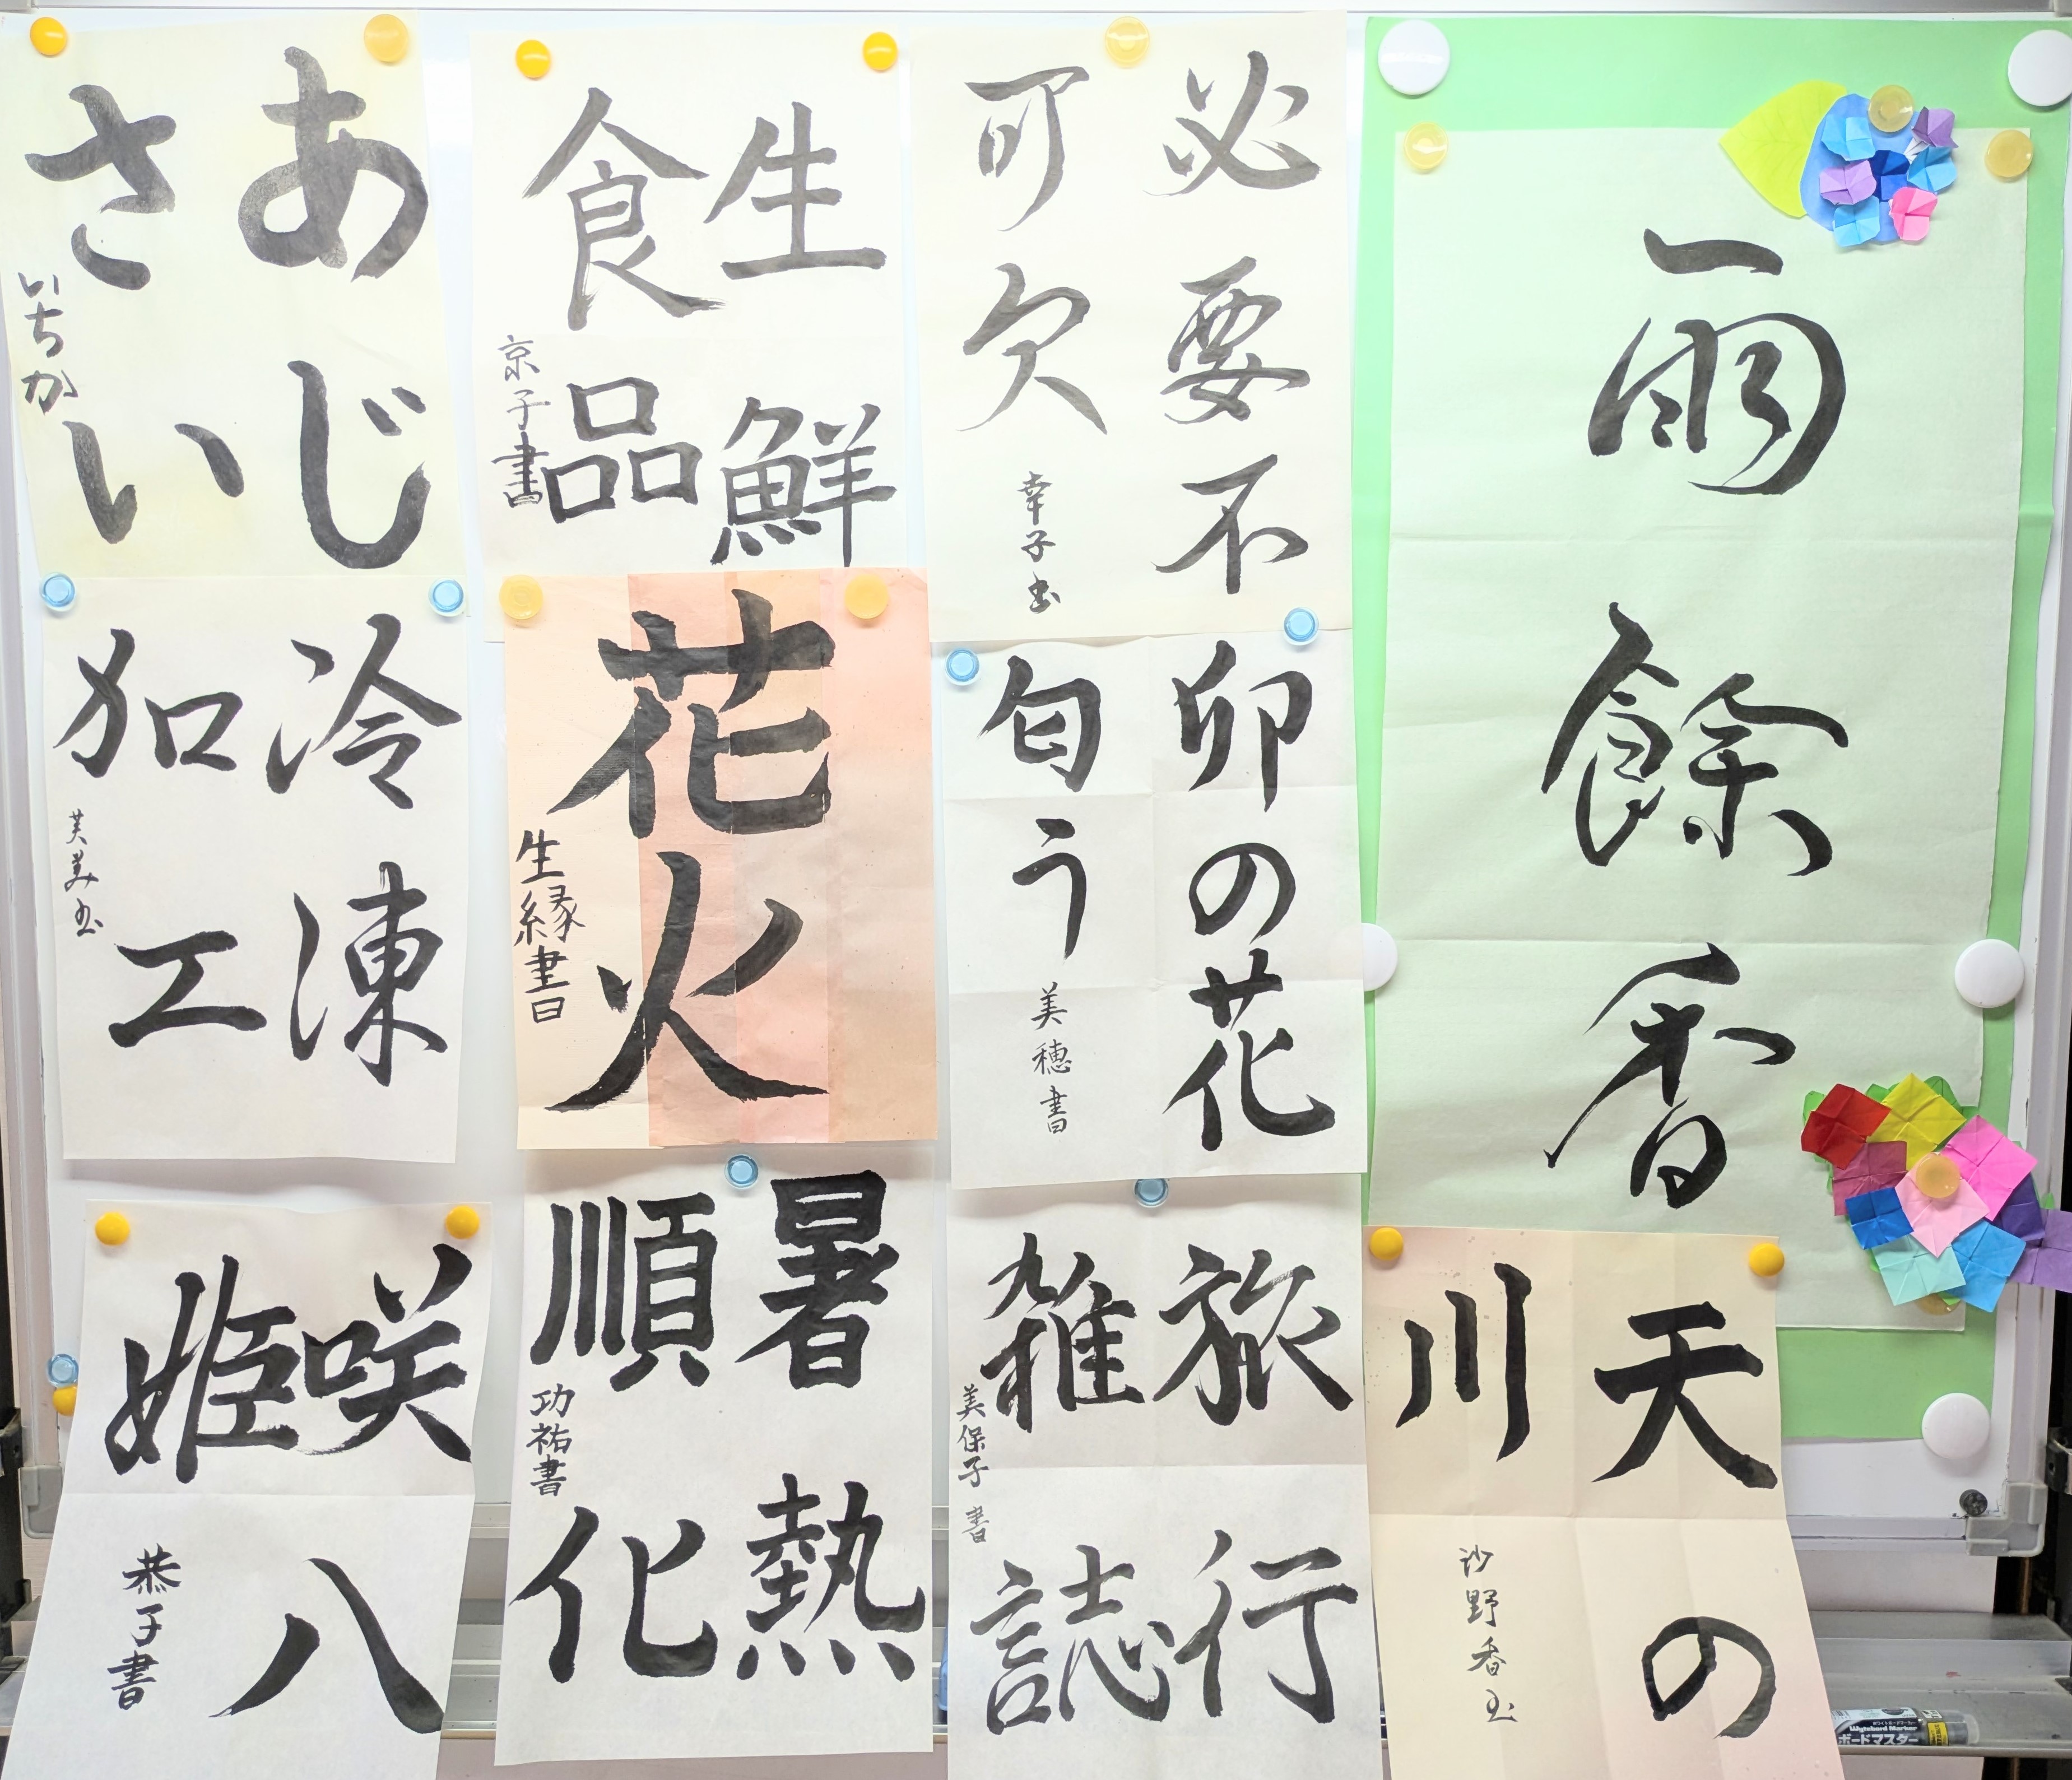 雨餘香
必要不
可欠
幸子書
生鮮
食品
京子書
あじ
さい
いちか
卯の花
匂う
美穂書
花火
生縁書
冷凍
加工
芙美書
天の
川
沙野香書
旅行
雑誌
美保子書
暑熱
順化
功祐書
咲八
姫
恭子書
ホワイトボードマーカー
Wytebord Marker
ボードマスター